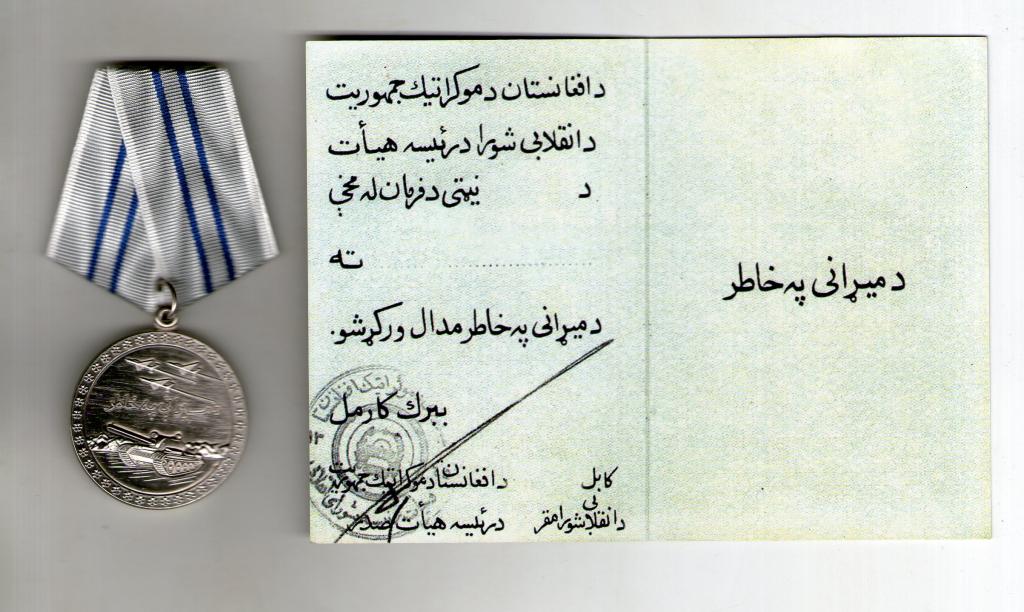 د افغانستان د موكراتيك جمهوريت
د انقلابى شورا د رئيسه هيأت
د نيټى د فرمان له مخې
ته
د ميړانى په خاطر مدال وركړ شو.
ببرك كارمل
د افغانستان د موكراتيك جمهوريت
د رئيسه هيأت صدر
كابل
د انقلابى شورا مقر
د ميړانى په خاطر